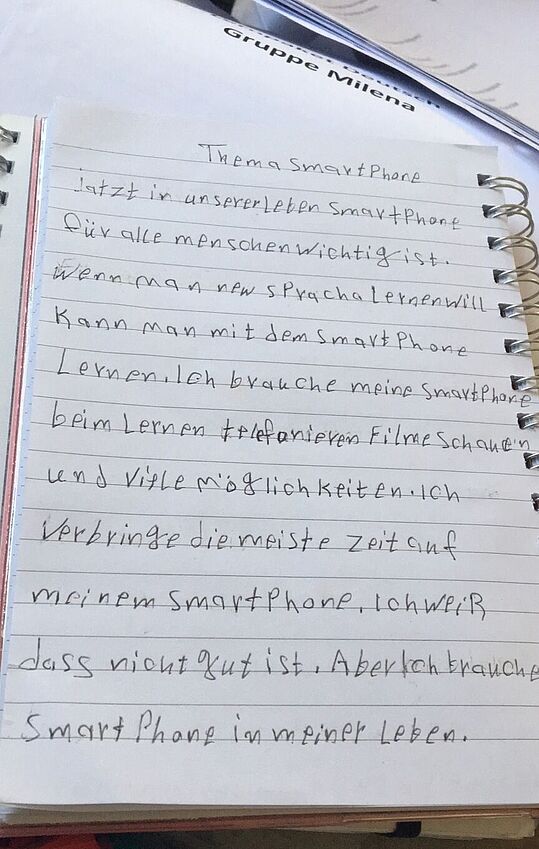 Gruppe Milena
Thema Smartphone
Jatzt in unsererleben Smartphone
für alle menschen wichtig ist.
Wenn man new spracha Lernen will
kann man mit dem Smartphone
Lernen. Ich brauche meine Smartphone
beim Lernen telefonieren Filme Schauen
und viele möglichkeiten. Ich
verbringe die meiste Zeit auf
meinem Smartphone. Ich weiß
dass nicht gut ist. Aber Ich brauche
Smartphone in meiner Leben.